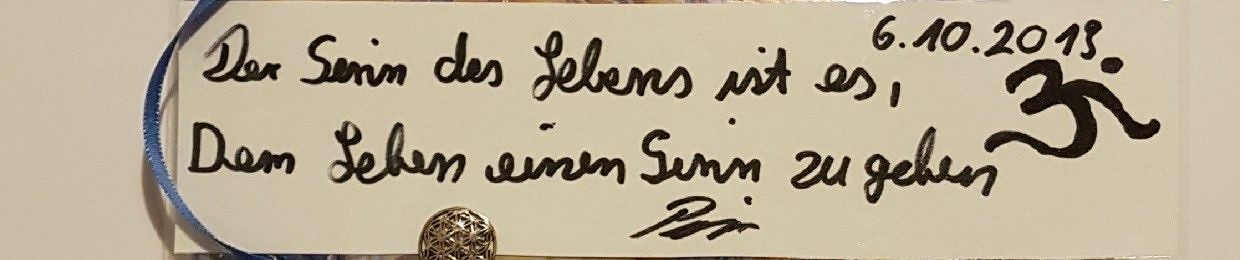 6.10.2019
Der Sinn des Lebens ist es,
Dem Leben einen Sinn zu geben